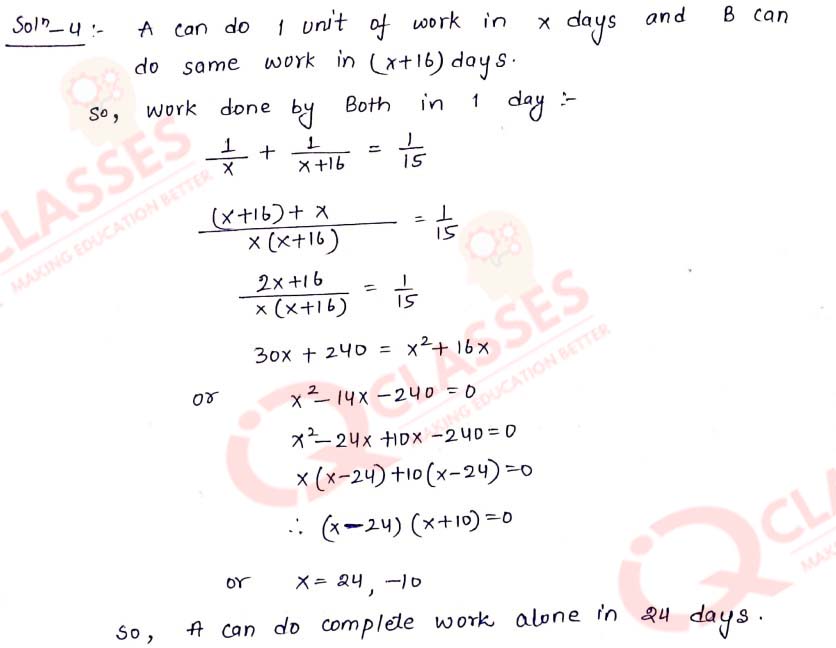 Solⁿ-4:- A can do 1 unit of work in x days and B can
do same work in (x+16) days.
So, work done by Both in 1 day:-
1/x + 1/(x+16) = 1/15
((x+16)+x)/(x(x+16)) = 1/15
(2x+16)/(x(x+16)) = 1/15
30x + 240 = x²+16x
or x²-14x-240=0
x²-24x+10x-240=0
x(x-24)+10(x-24)=0
∴ (x-24)(x+10)=0
or x=24, -10
So, A can do complete work alone in 24 days.
CLASSES
MAKING EDUCATION BETTER
IQ CLASSES
MAKING EDUCATION BETTER
IQ CLA
MAK